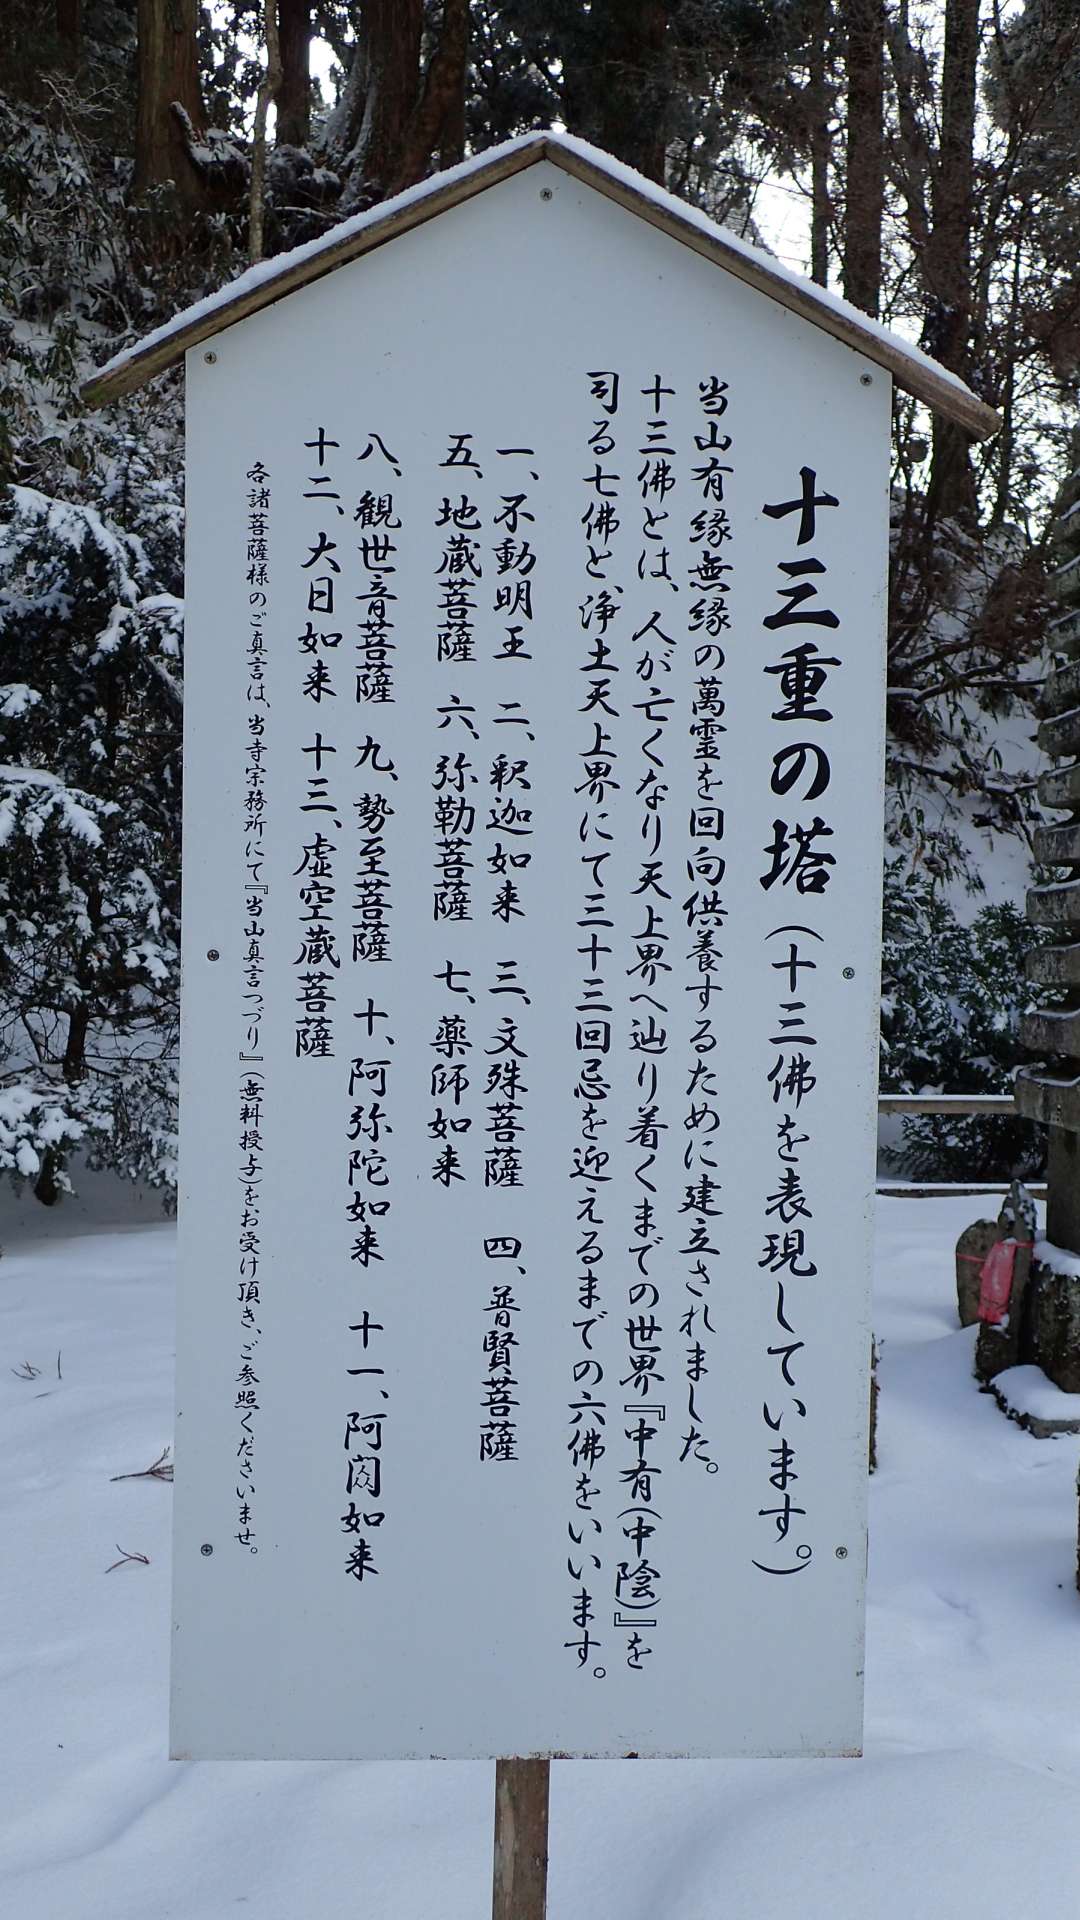 十三重の塔（十三佛を表現しています。）
当山有縁無縁の萬霊を回向供養するために建立されました。
十三佛とは、人が亡くなり天上界へ辿り着くまでの世界『中有(中陰)』を
司る七佛と、浄土天上界にて三十三回忌を迎えるまでの六佛をいいます。
一、不動明王　二、釈迦如来　三、文殊菩薩　四、普賢菩薩
五、地蔵菩薩　六、弥勒菩薩　七、薬師如来
八、観世音菩薩　九、勢至菩薩　十、阿弥陀如来　十一、阿閦如来
十二、大日如来　十三、虚空蔵菩薩
各諸菩薩様のご真言は、当寺宗務所にて『当山真言つづり』(無料授与)を、お受け頂き、ご参照くださいませ。